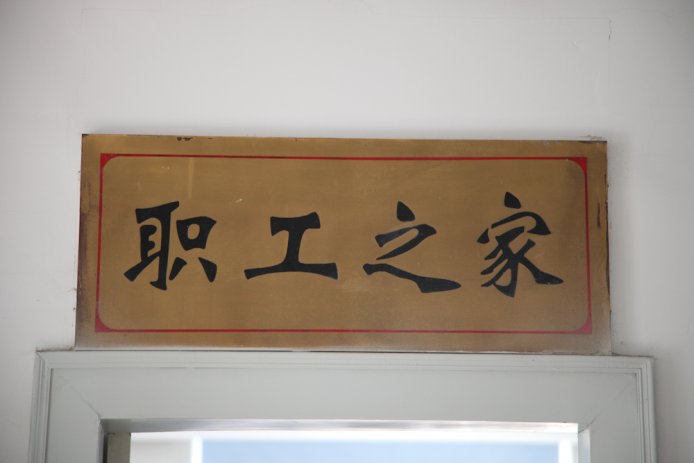 职工之家